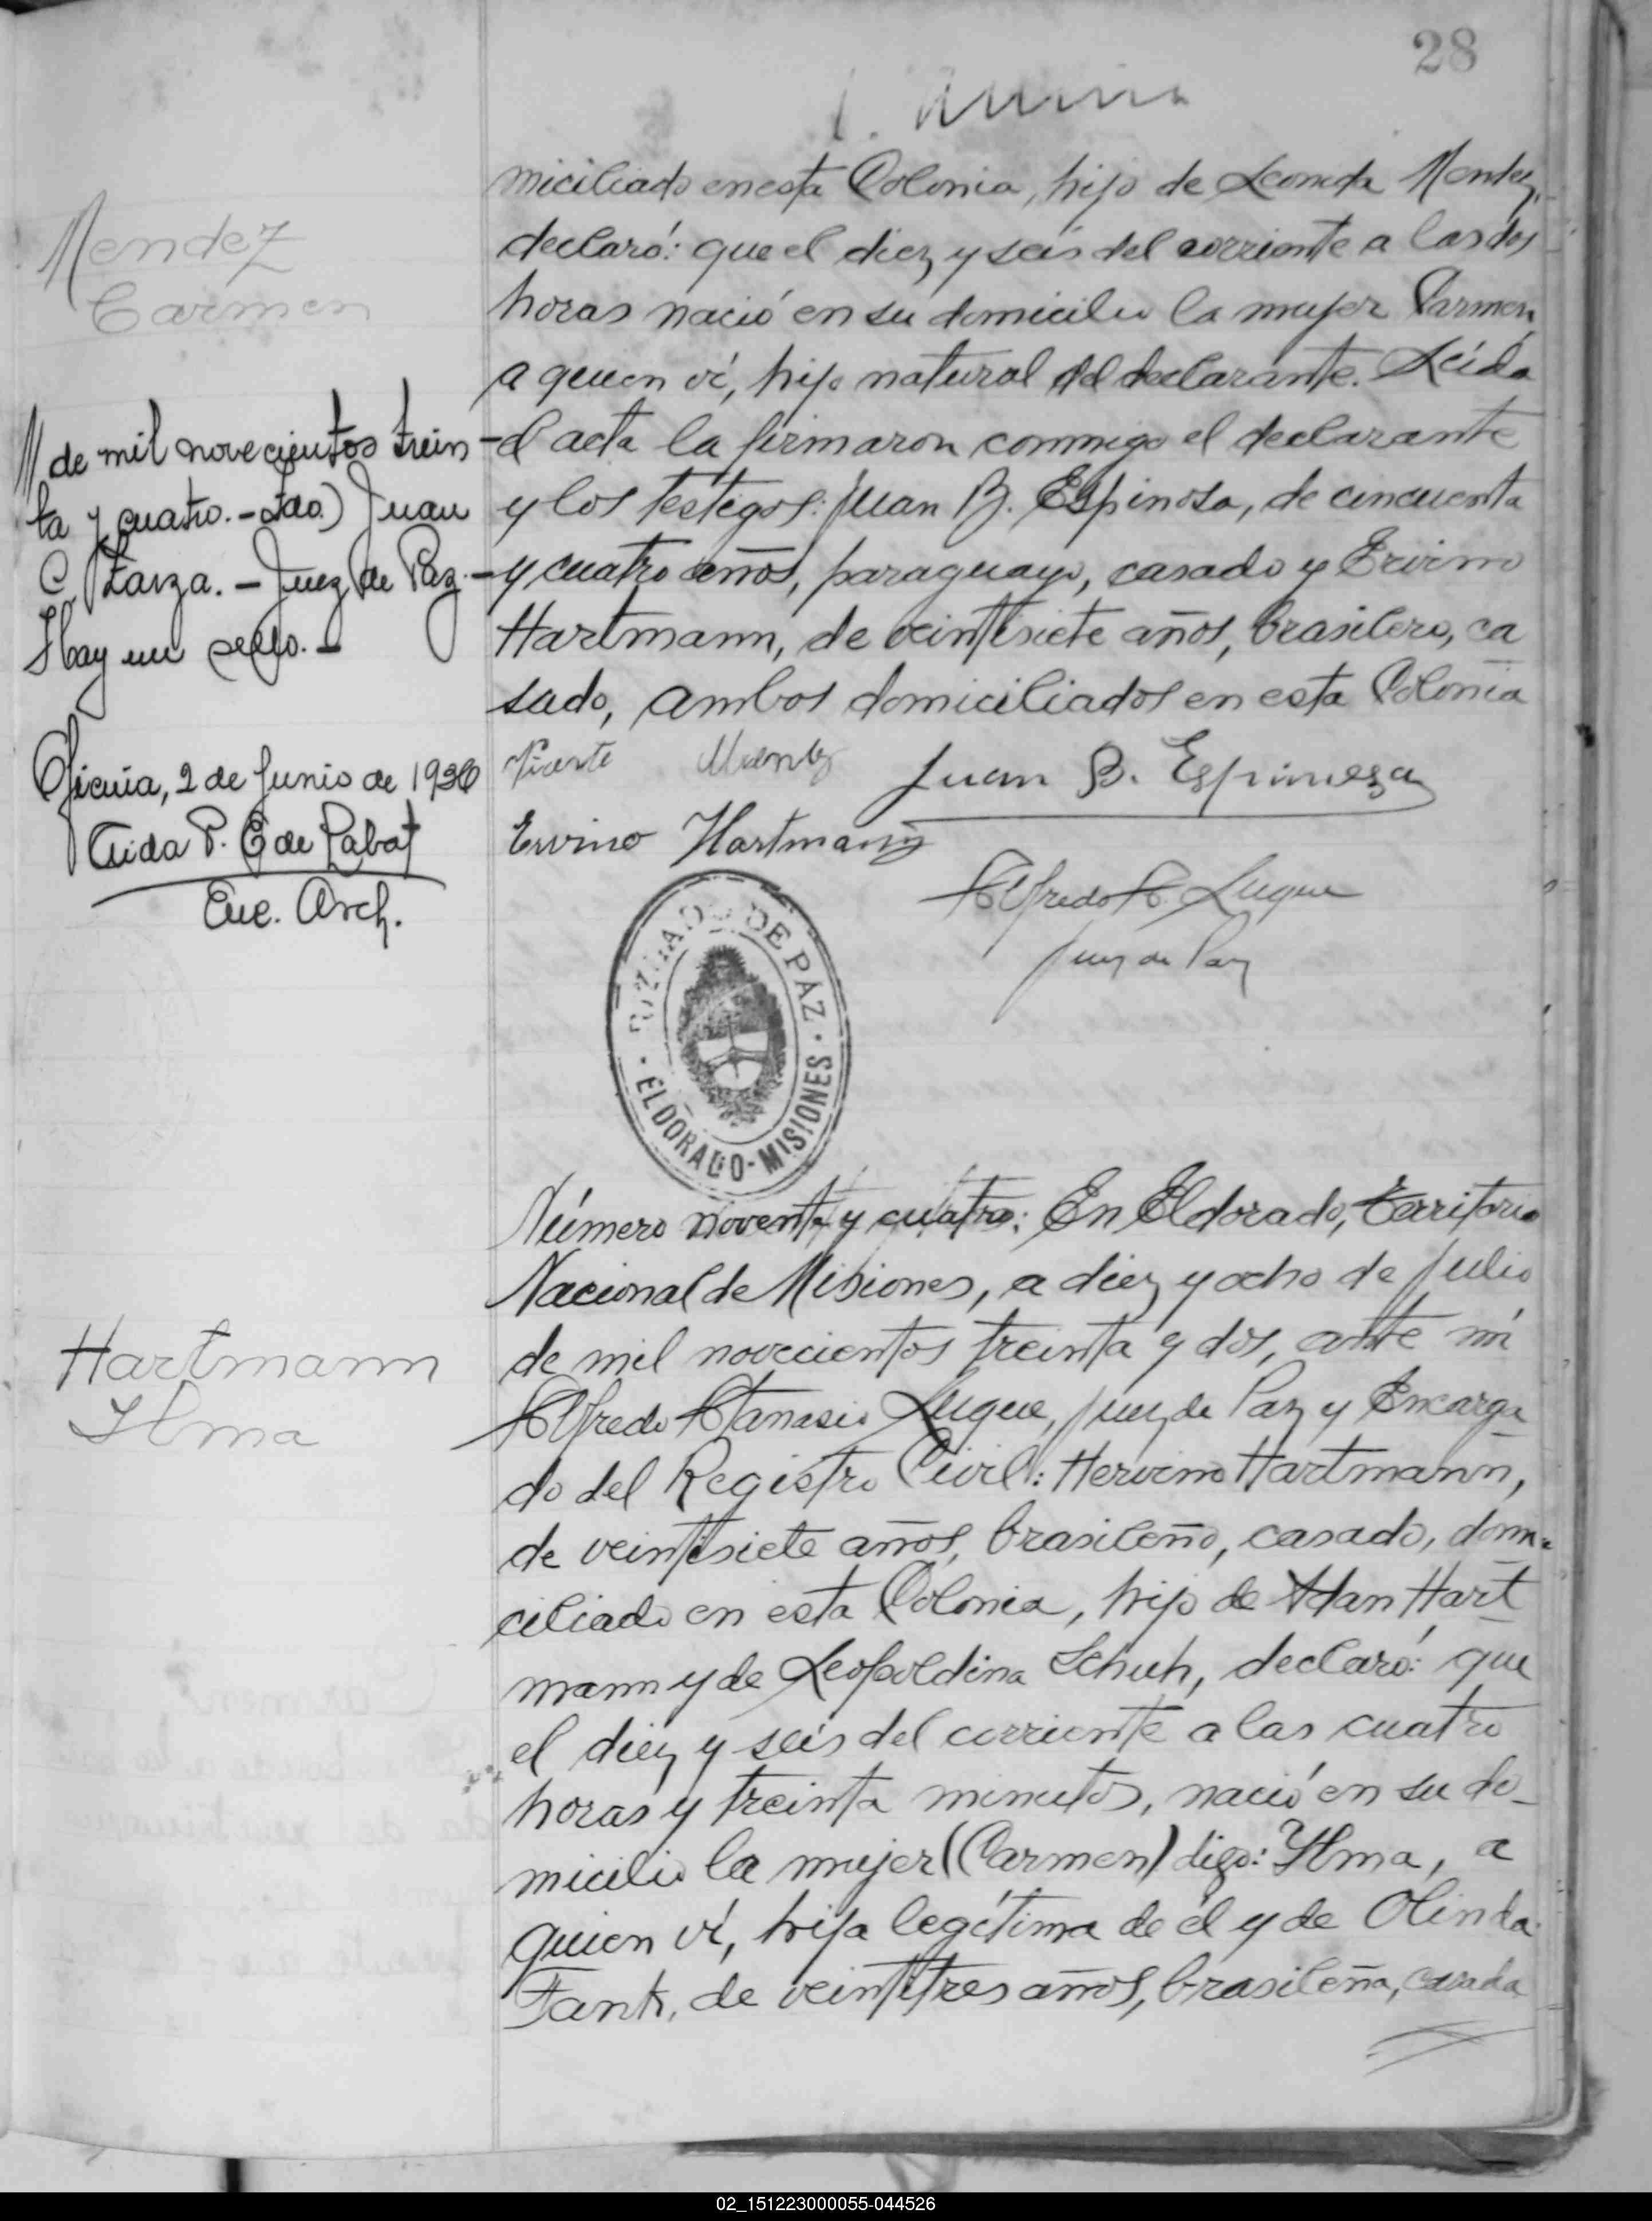 28
miciliado en esta Colonia, hijo de Leonida Mendez,
declaró: que el diez y seis del corriente a las dos
horas nació en su domicilio la mujer Carmen
a quien ví, hijo natural del declarante. Leída
el acta la firmaron conmigo el declarante
y los testigos: Juan B. Espinosa, de cincuenta
y cuatro años, paraguayo, casado y Ervino
Hartmann, de veintisiete años, brasilero, ca
sado, ambos domiciliados en esta Colonia
Vicente Mendez Juan B. Espinosa
Ervino Hartmann
Alfredo A. Luque
Juez de Paz
JUZGADO DE PAZ
· ELDORADO - MISIONES ·
Mendez
Carmen
de mil novecientos trein
ta y cuatro. - Fdo.) Juan
C. Zarza. - Juez de Paz. -
Hay un sello. -
Oficina, 2 de Junio de 1936
Aida P. E de Pabat
Enc. Arch.
Número noventa y cuatro: En Eldorado, Territorio
Nacional de Misiones, a diez y ocho de Julio
de mil novecientos treinta y dos, ante mí
Alfredo Atanasio Luque, Juez de Paz y Encarga
do del Registro Civil: Hervino Hartmann,
de veintisiete años, brasileño, casado, domi
ciliado en esta Colonia, hijo de Adan Hart
mann y de Leopoldina Schuh, declaró: que
el diez y seis del corriente a las cuatro
horas y treinta minutos, nació en su do-
micilio la mujer (Carmen) digo: Ylma, a
quien ví, hija legítima de él y de Olinda
Fank, de veintitres años, brasileña, casada
Hartmann
Ylma
02_151223000055-044526